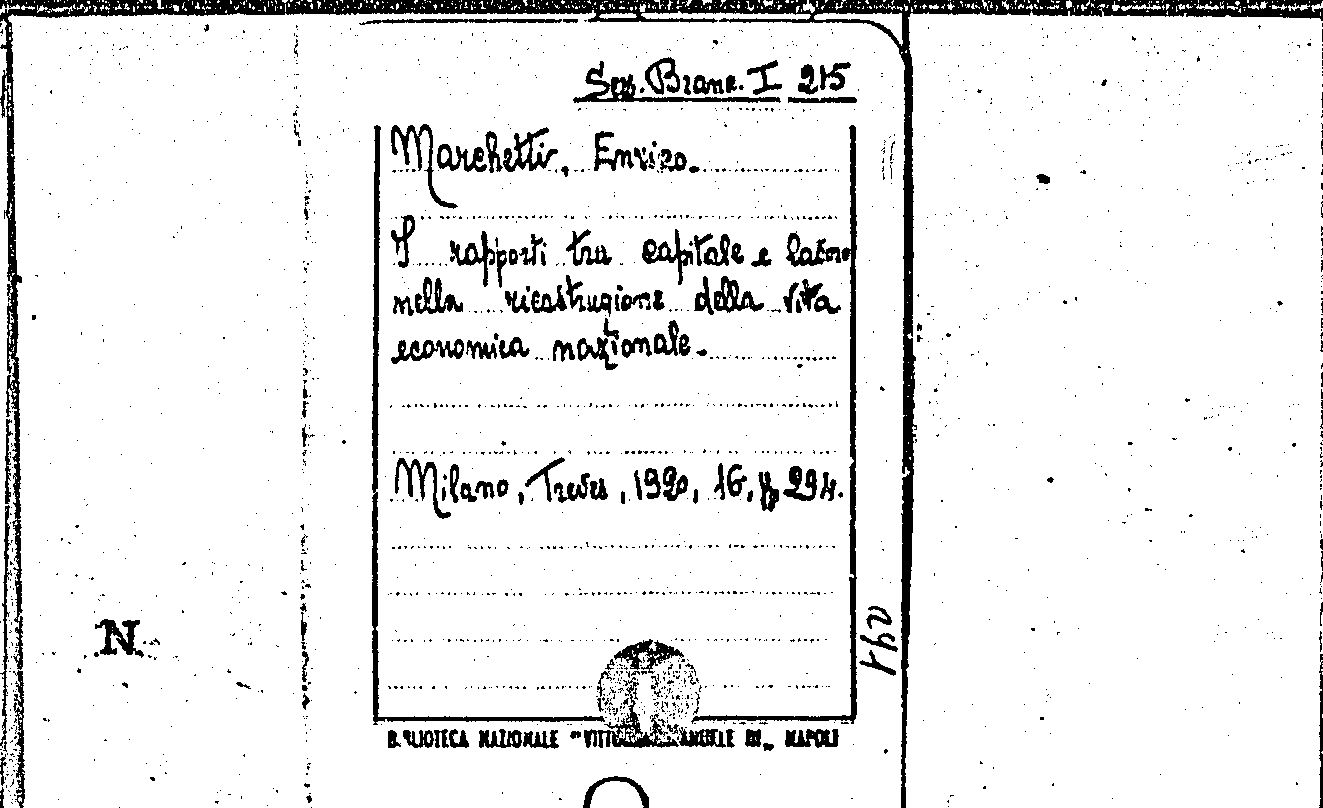 Sez. Branc. I 215
Marchetti, Enrico.
I rapporti tra capitale e lavoro
nella ricostruzione della vita
economica nazionale.
Milano, Treves, 1920, 16, p. 294.
N
BIBLIOTECA NAZIONALE "VITTORIO EMANUELE III" NAPOLI